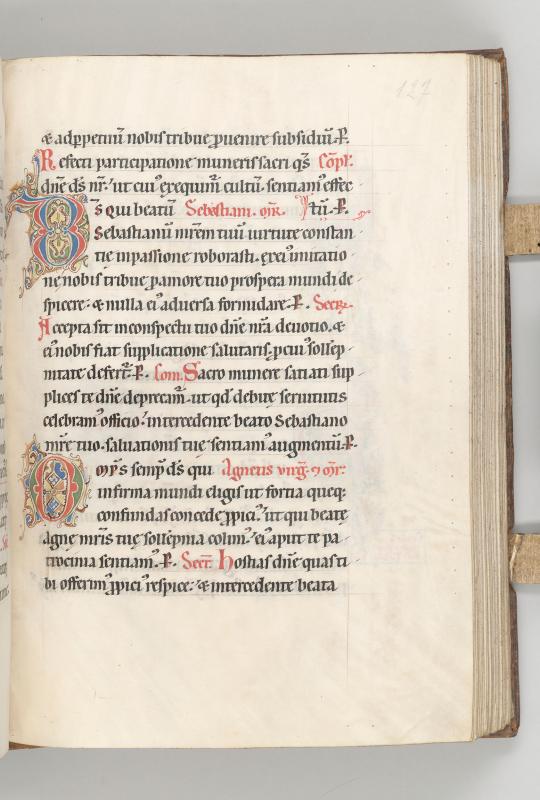 127
& ad ꝑpetuū nobis tribue ꝓuenire subsidiū. P.
Refecti participatione muneris sacri qs̄ Cōpl'.
dn̄e ds̄ nr̄. ut cui' exequim̄ cultū. sentiam' effec
D s̄ qui beatū Sebastiani. mr̄. tū. P.
Sebastianū mr̄em tuū uirtute constan
tie in passione roborasti. ex ei' imitatio
ne nobis tribue ꝓ amore tuo prospera mundi de
spicere. & nulla ei' aduersa formidare. P. Secr̄.
Accepta sit in conspectu tuo dn̄e nr̄a deuotio. &
ei' nobis fiat supplicatione salutaris. ꝓ cui' sollēp
nitate defert̄. P. Com. Sacro munere satiati sup
plices te dn̄e deprecam̄. ut qd̄ debite seruitutis
celebram' officio. intercedente beato Sebastiano
mr̄e tuo. saluationis tue sentiam' augmentū. P.
O mp̄s semp̄ ds̄ qui Agnetis uirḡ. & mr̄.
infirma mundi eligis ut fortia queq:
confundas concede ꝓpici'. ut qui beate
agne mr̄is tue sollēpnia colim'. ei' aput te pa
trocinia sentiam'. P. Secr̄. Hostias dn̄e quas ti
bi offerim' ꝓpici' respice. & intercedente beata